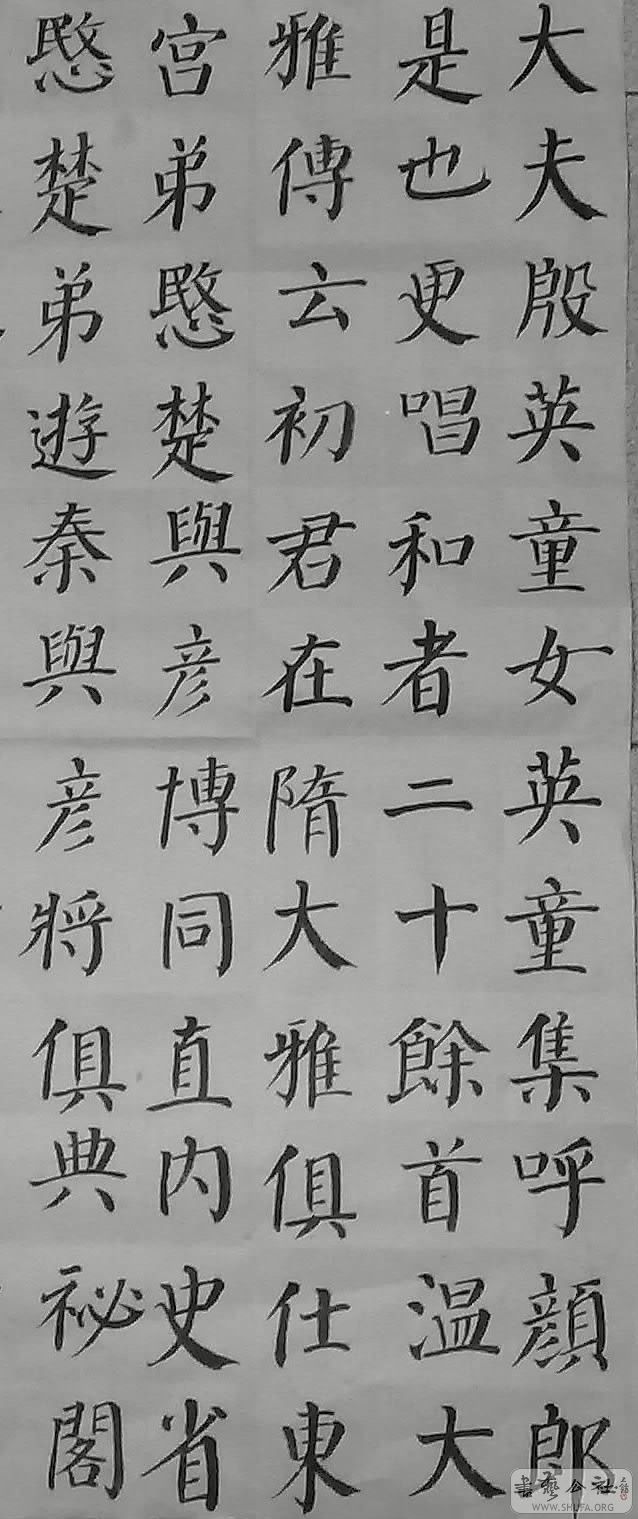 大夫殷英童女英童集呼顏郎
是也更唱和者二十餘首温大
雅傳云初君在隋大雅俱仕東
宫弟愍楚與彦博同直内史省
愍楚弟遊秦與彦將俱典祕閣
書藝公社
WWW.SHUFA.ORG